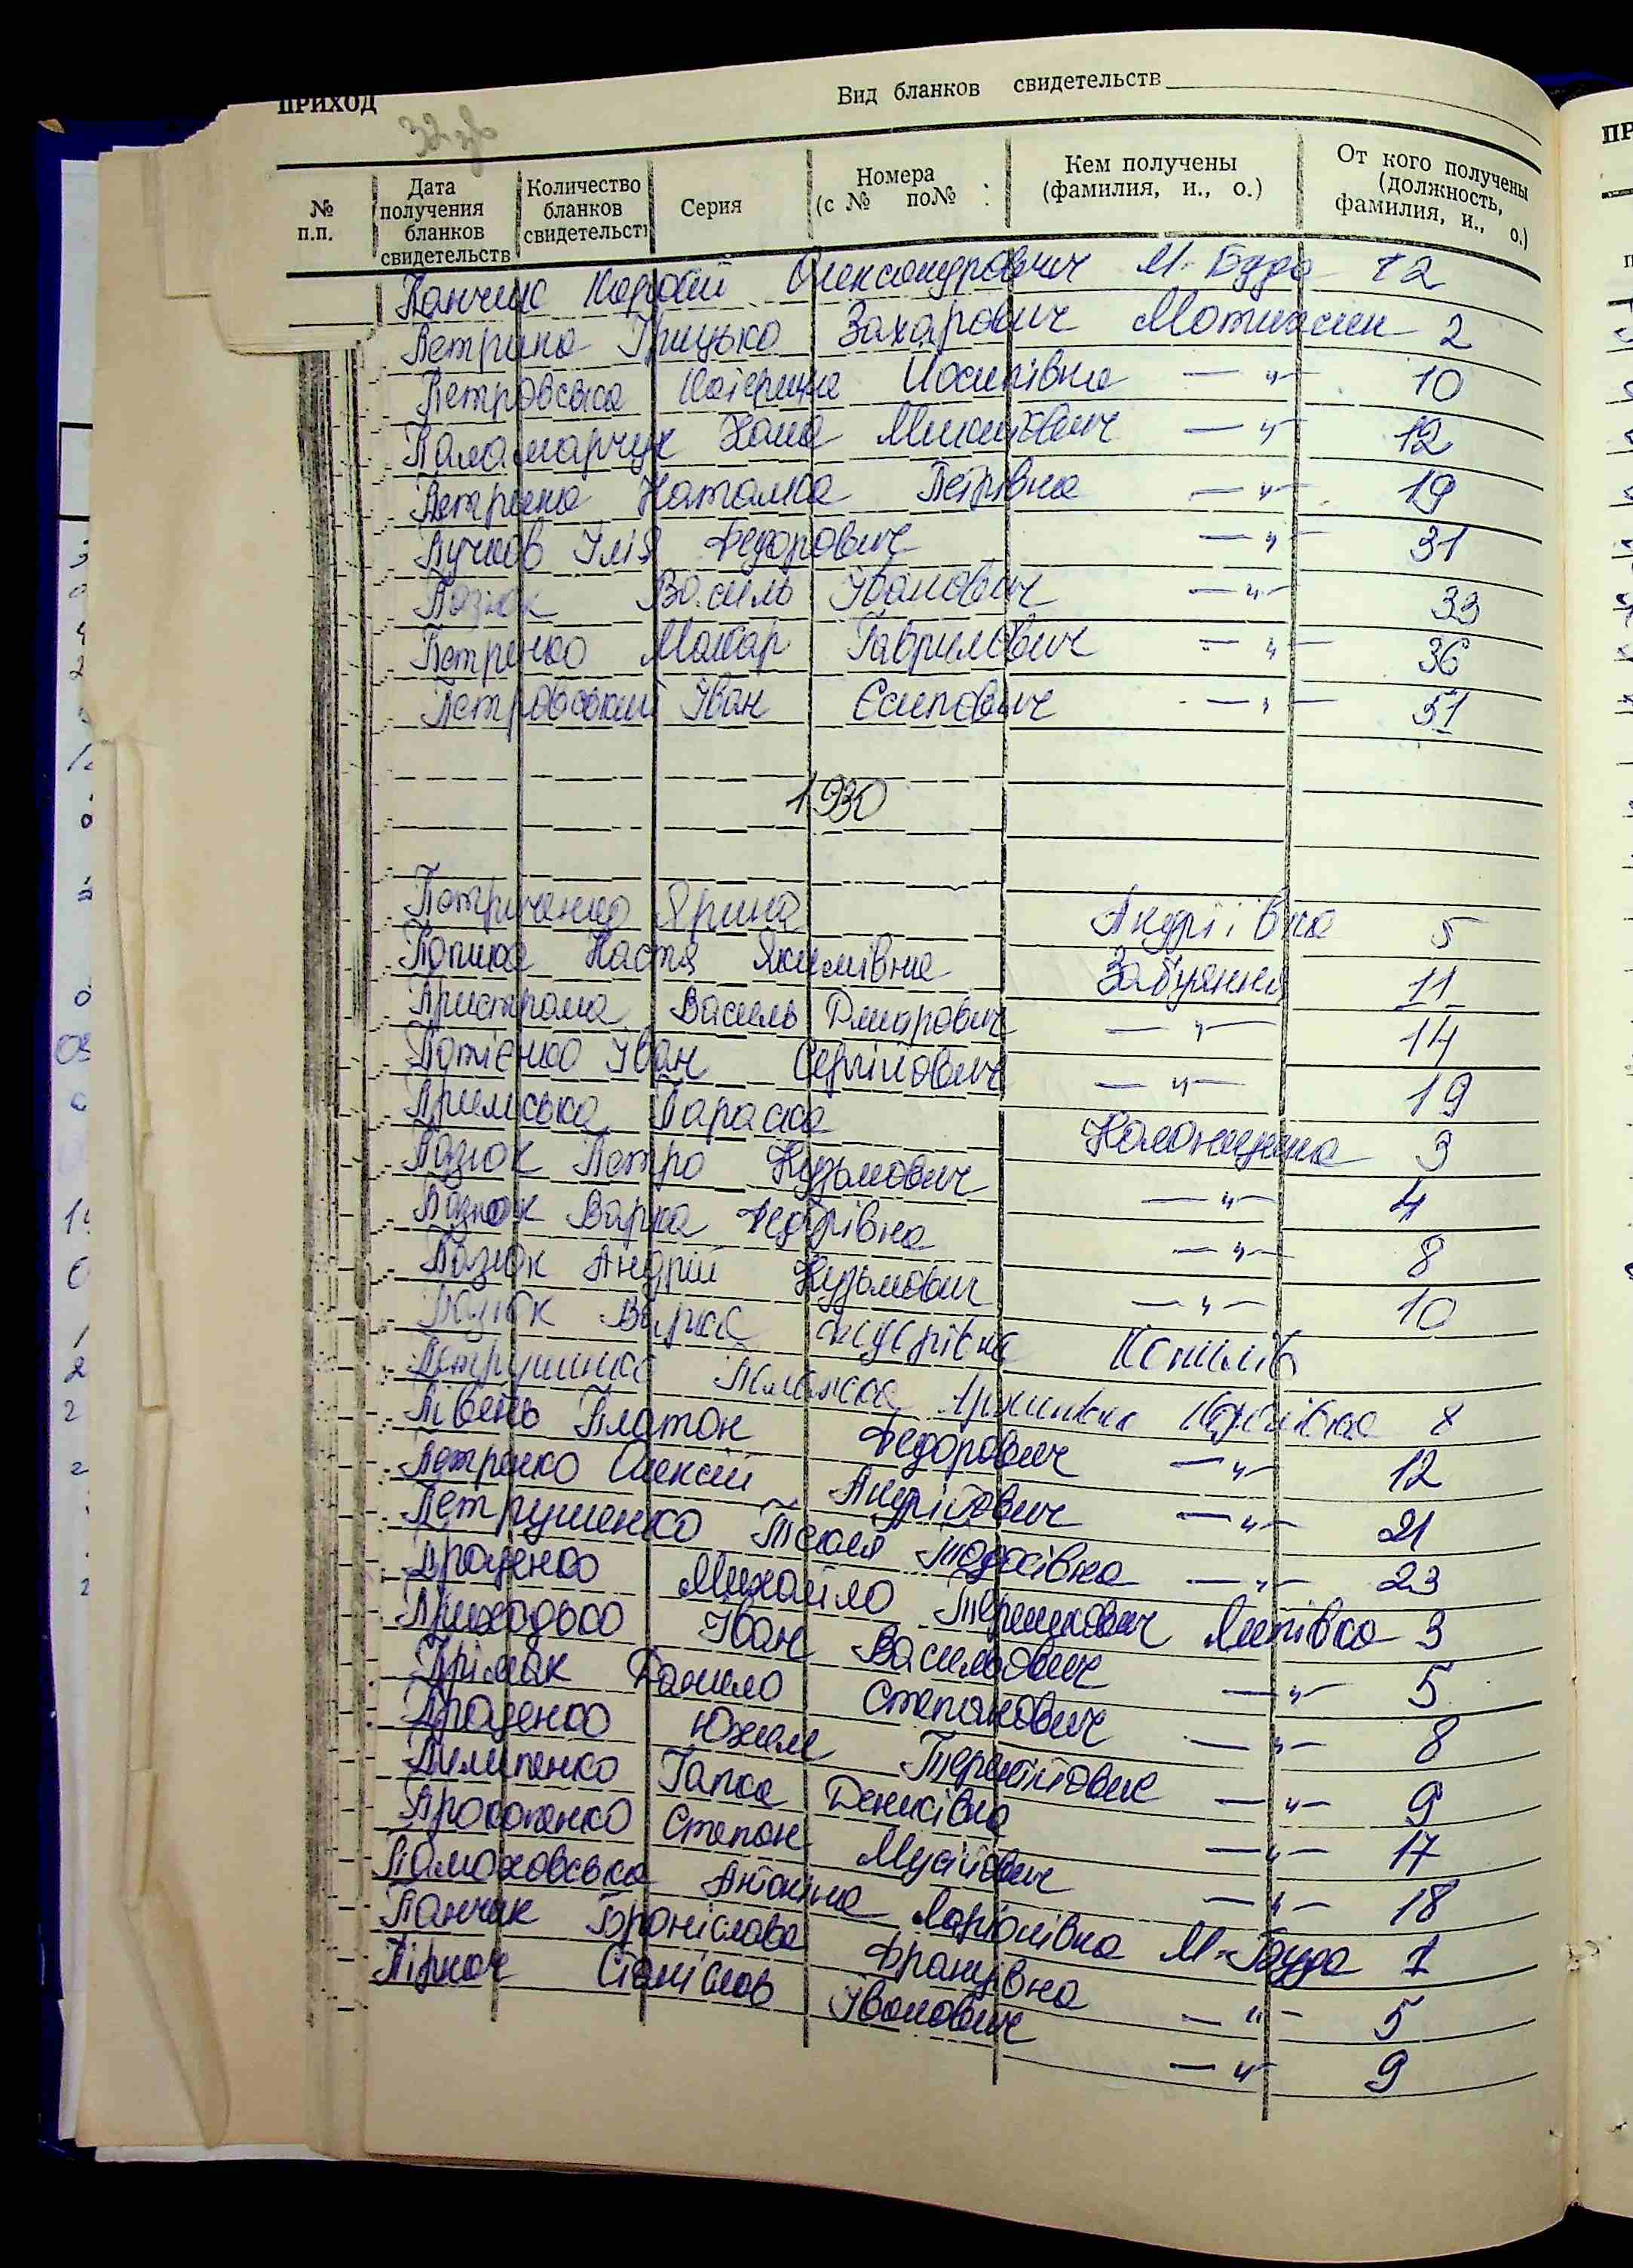 ПРИХОД
Вид бланков свидетельств
32
№ п.п.
Дата получения бланков свидетельств
Количество бланков свидетельств
Серия
Номера (с № по№ :
Кем получены (фамилия, и., о.)
От кого получены (должность, фамилия, и., о.)
Олександрович М. Буда 12
Петрина Грицько Захарович Мотижин 2
Петровська Катерина Йосипівна —〃— 10
Паламарчук Хома —〃— 12
Петрина Наталка Петрівна —〃— 19
Пучков Ілія Федорович —〃— 31
Позюк Василь Іванович —〃— 33
Петренко Макар Гаврилович —〃— 36
Петровський Іван Єсипович —〃— 51
1930
Петриченко Ярина Андріївна 5
Попика Настя Якимівна Забуяння 11
Пристрома Василь —〃— 14
Потієнко Іван Сергійович —〃— 19
Параска Колонщина 3
Позюк Петро Кузьмович —〃— 4
Позюк Варка Федорівна —〃— 8
Позюк Андрій Кузьмович —〃— 10
Позюк Варка Федорівна Копилів
Палажка 8
Півень Платон Федорович —〃— 12
Петренко Олексій Андрійович —〃— 21
Петрушенко Текля Тодосівна —〃— 23
Проценко Михайло Липівка 3
Приходько Іван Васильович —〃— 5
Прімак Данило Степанович —〃— 8
Проценко Юхим Терентійович —〃— 9
Пилипенко Гапка Денисівна —〃— 17
Прокопенко Степан Мусійович —〃— 18
Антоніна М-Буда 1
Панчик Броніслава Францівна —〃— 5
Станіслав Іванович —〃— 9
ПР